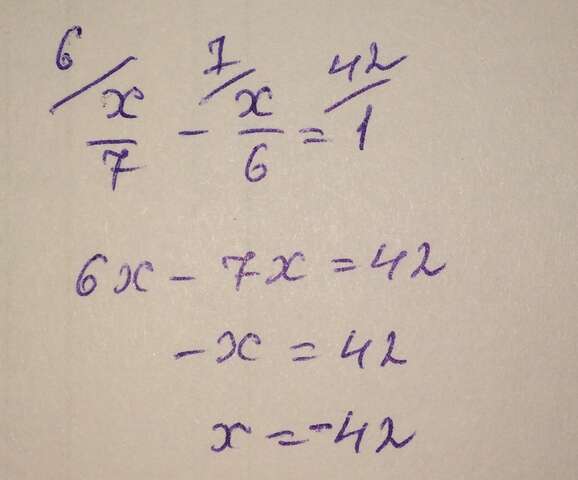 6/ x/7 - 7/ x/6 = 42/ 1
6x - 7x = 42
-x = 42
x = -42